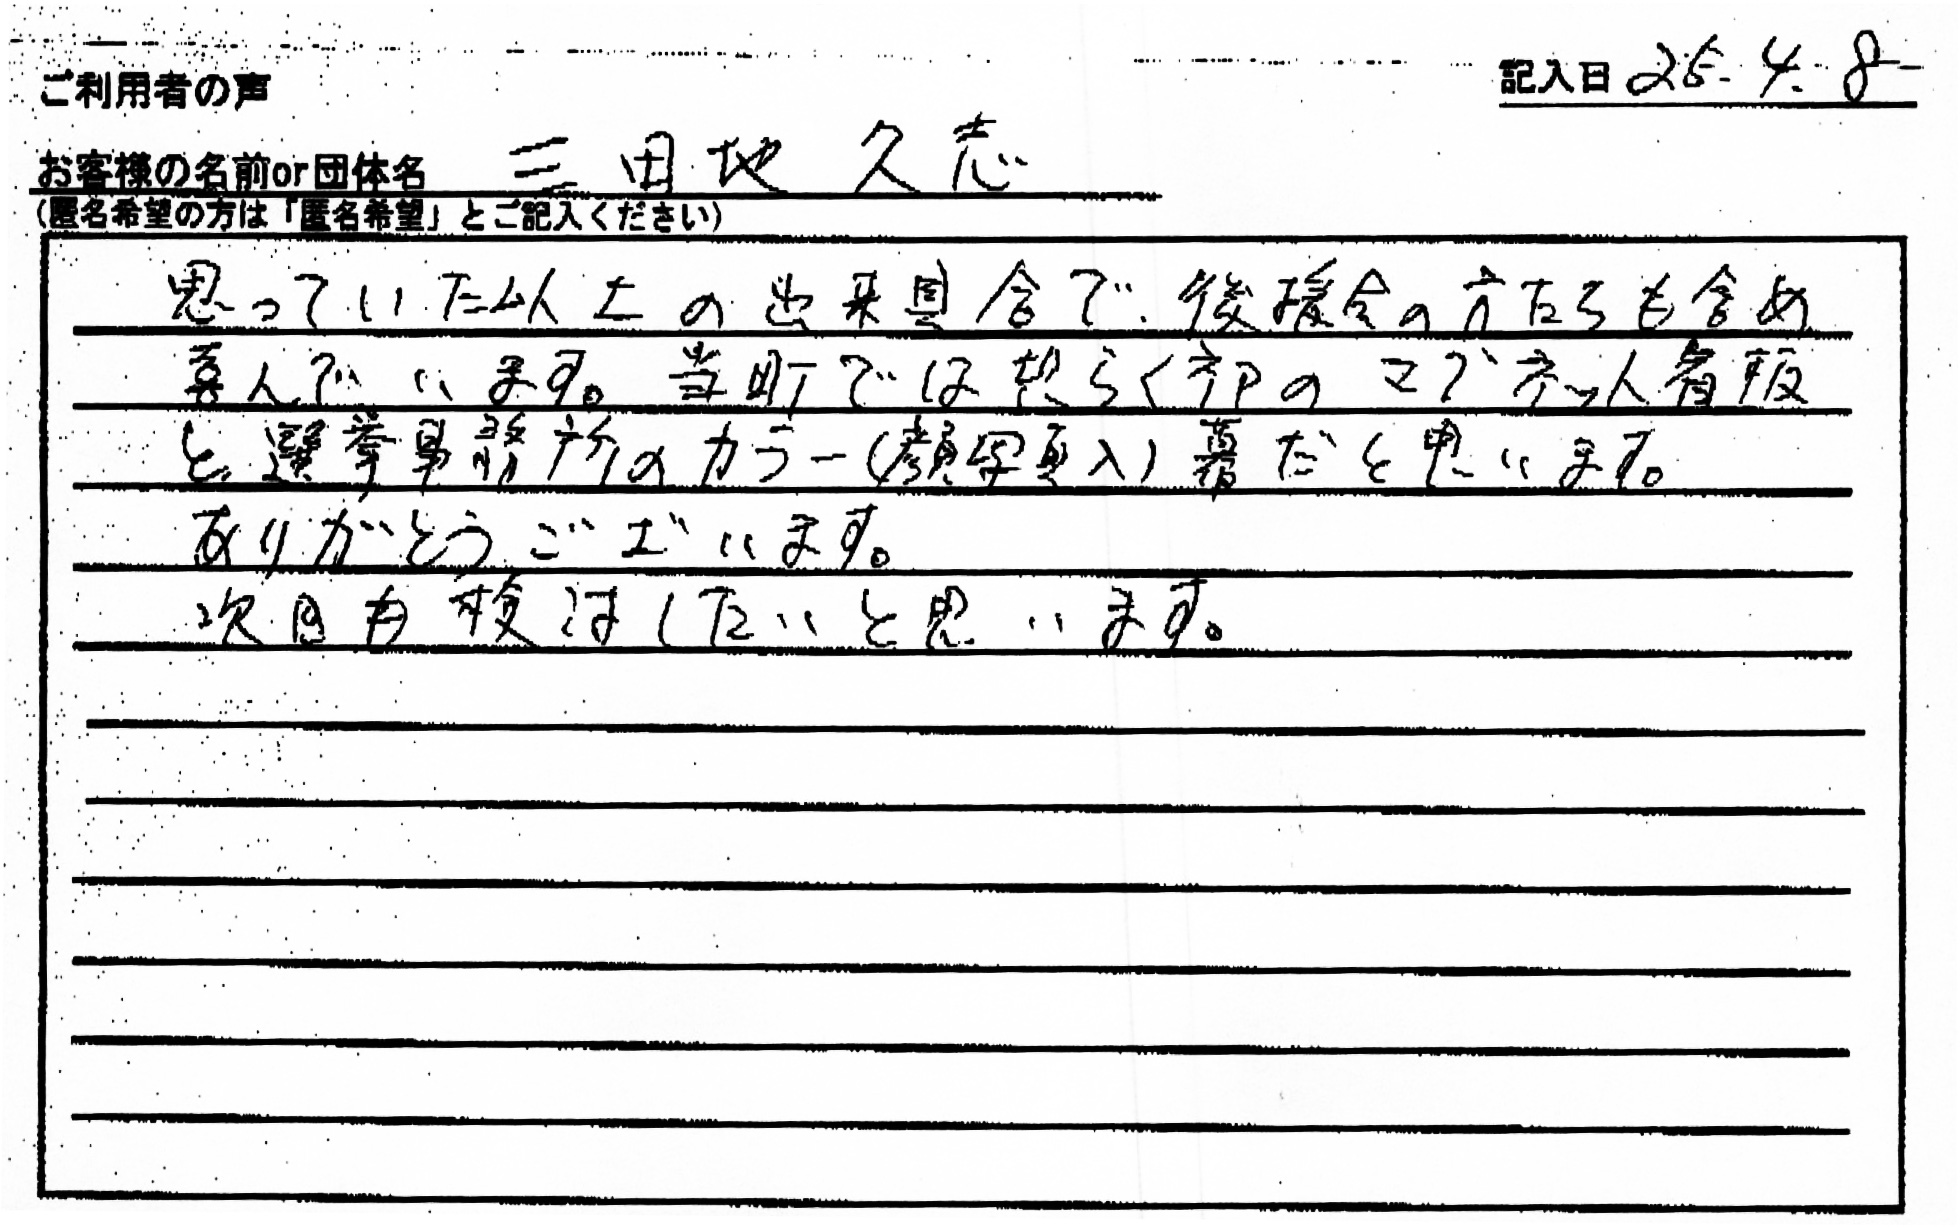 ご利用者の声
記入日 25.4.8
お客様の名前or団体名 三田地 久志
(匿名希望の方は「匿名希望」とご記入ください)
思っていた以上の出来具合で、後援会の方たちも含め
喜んでいます。当町では恐らく初のマグネット看板
と選挙事務所のカラー(顔写真入)幕だと思います。
ありがとうございます。
次回もしたいと思います。